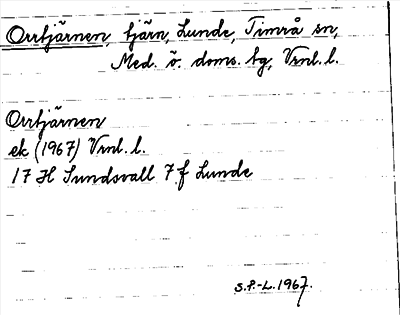 Orrtjärnen, tjärn, Lunde, Timrå sn,
Med. ö. doms. tg, Vrnl. l.
Orrtjärnen
ek (1967) Vrnl. l.
17 H Sundsvall 7 f Lunde
S.P.-L. 1967.